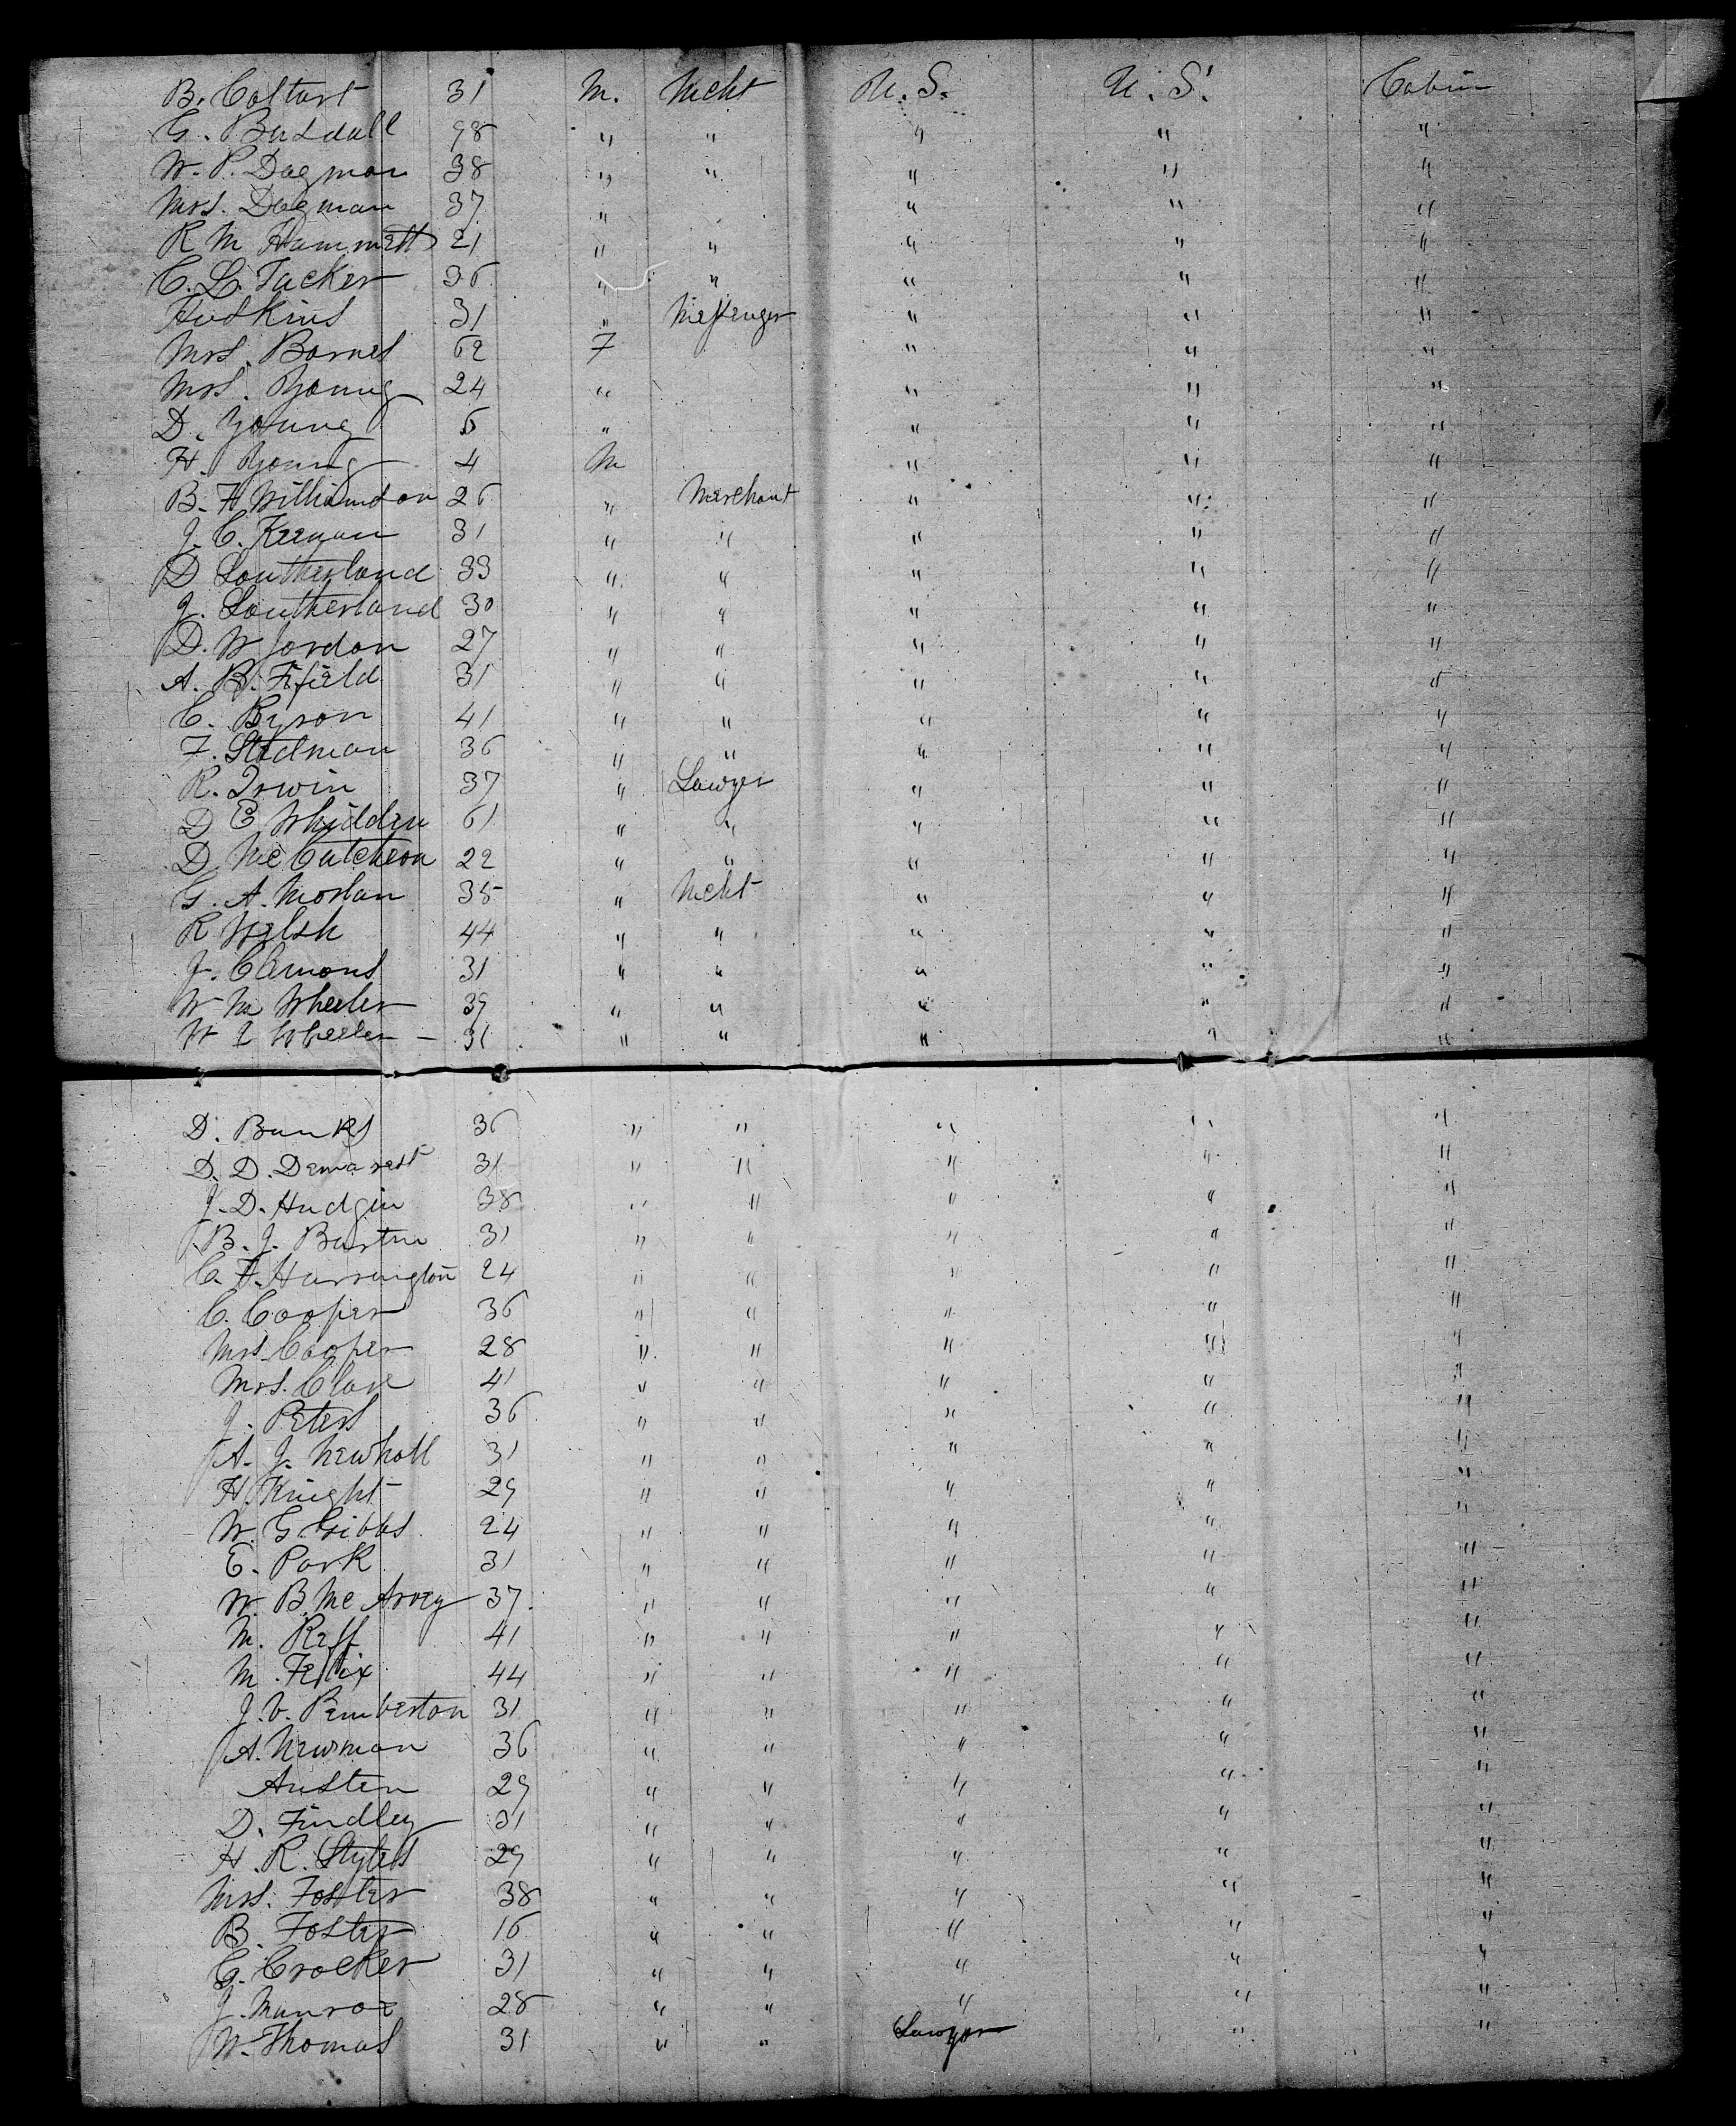 B. Coltart 31 M. Mcht U. S. U. S. Cabin
G. Basdall 98 " " " " "
W. P. Dagman 38 " " " " "
Mrs. Dagman 37 " " " "
R M Hammett 21 " " " " "
C. L. Tucker 36 " " " " "
Hudkins 31 " Messenger " " "
Mrs. Barnes 62 F " " "
Mrs. Young 24 " " " "
D. Young 6 " " " "
H. Young 4 M " " "
B. H Williamson 26 " Merchant " " "
J. C. Keenan 31 " " " " "
D Southerland 33 " " " " "
J. Southerland 30 " " " " "
D. W Jordan 27 " " " " "
A. B. Fifield 31 " " " " "
C. Byron 41 " " " " "
F. Stedman 36 " " " " "
R. Irwin 37 " Lawyer " " "
D E Whidden 61 " " " " "
D. McCutcheon 22 " " " " "
G. A. Moslan 35 " Mcht " " "
R Welsh 44 " " " " "
J. Clemons 31 " " " " "
W M Wheeler 39 " " " " "
W L Wheeler 31 " " " " "
D. Banks 36 " " " " "
D. D. Demarest 31 " " " " "
J. D. Hudgin 38 " " " " "
B. J. Burton 31 " " " " "
C. F. Harrington 24 " " " " "
C. Cooper 36 " " " " "
Mrs Cooper 28 " " " " "
Mrs. Clark 41 " " " " "
J. Peters 36 " " " " "
A. J. Newhall 31 " " " " "
H. Knight 29 " " " " "
W. G. Gibbs 24 " " " " "
E. Park 31 " " " " "
W. B. McAvoy 37. " " " " "
M. Reff 41 " " " " "
M. Felix 44 " " " " "
J. V. Pemberton 31 " " " " "
A. Newman 36 " " " " "
Austen 29 " " " " "
D. Findley 31 " " " " "
H. R. Styles 29 " " " " "
Mrs. Foster 38 " " " " "
B. Foster 16 " " " " "
G. Crocker 31 " " " " "
J. Munroe 28 " " " " "
W. Thomas 31 " " Lawyer " "